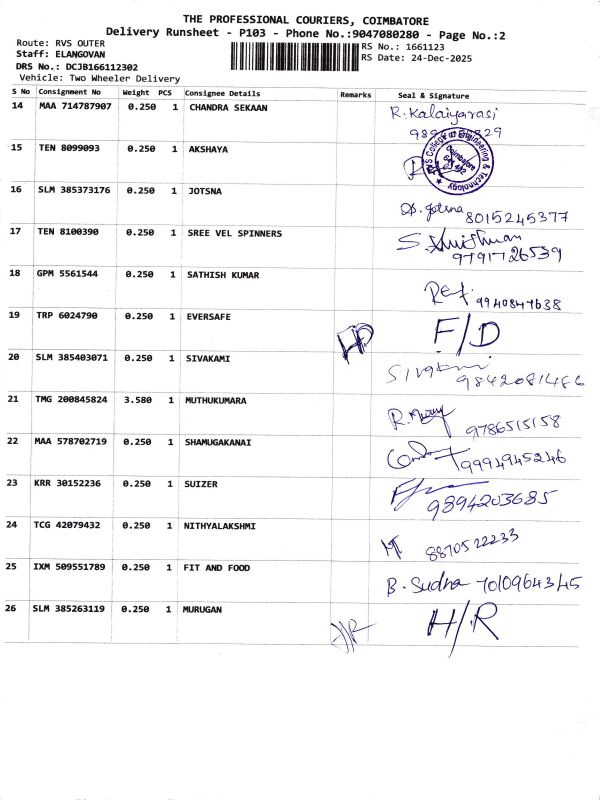 THE PROFESSIONAL COURIERS, COIMBATORE
Delivery Runsheet - P103 - Phone No.:9047080280 - Page No.:2
Route: RVS OUTER
Staff: ELANGOVAN
RS No.: 1661123
DRS No.: DCJB166112302
RS Date: 24-Dec-2025
Vehicle: Two Wheeler Delivery
S No Consignment No Weight PCS Consignee Details Remarks Seal & Signature
14 MAA 714787907 0.250 1 CHANDRA SEKAAN R. Kalaiyarasi
RVS College of Engineering & Technology
Coimbatore
15 TEN 8099093 0.250 1 AKSHAYA
16 SLM 385373176 0.250 1 JOTSNA 8015245377
17 TEN 8100390 0.250 1 SREE VEL SPINNERS 9791726539
18 GPM 5561544 0.250 1 SATHISH KUMAR 9940847638
19 TRP 6024790 0.250 1 EVERSAFE F/D
20 SLM 385403071 0.250 1 SIVAKAMI 9842081486
21 TMG 200845824 3.580 1 MUTHUKUMARA 9786515158
22 MAA 578702719 0.250 1 SHAMUGAKANAI 9994945246
23 KRR 30152236 0.250 1 SUIZER 9894203685
24 TCG 42079432 0.250 1 NITHYALAKSHMI 8870522233
25 IXM 509551789 0.250 1 FIT AND FOOD B. Sudha 7010964345
26 SLM 385263119 0.250 1 MURUGAN H/R